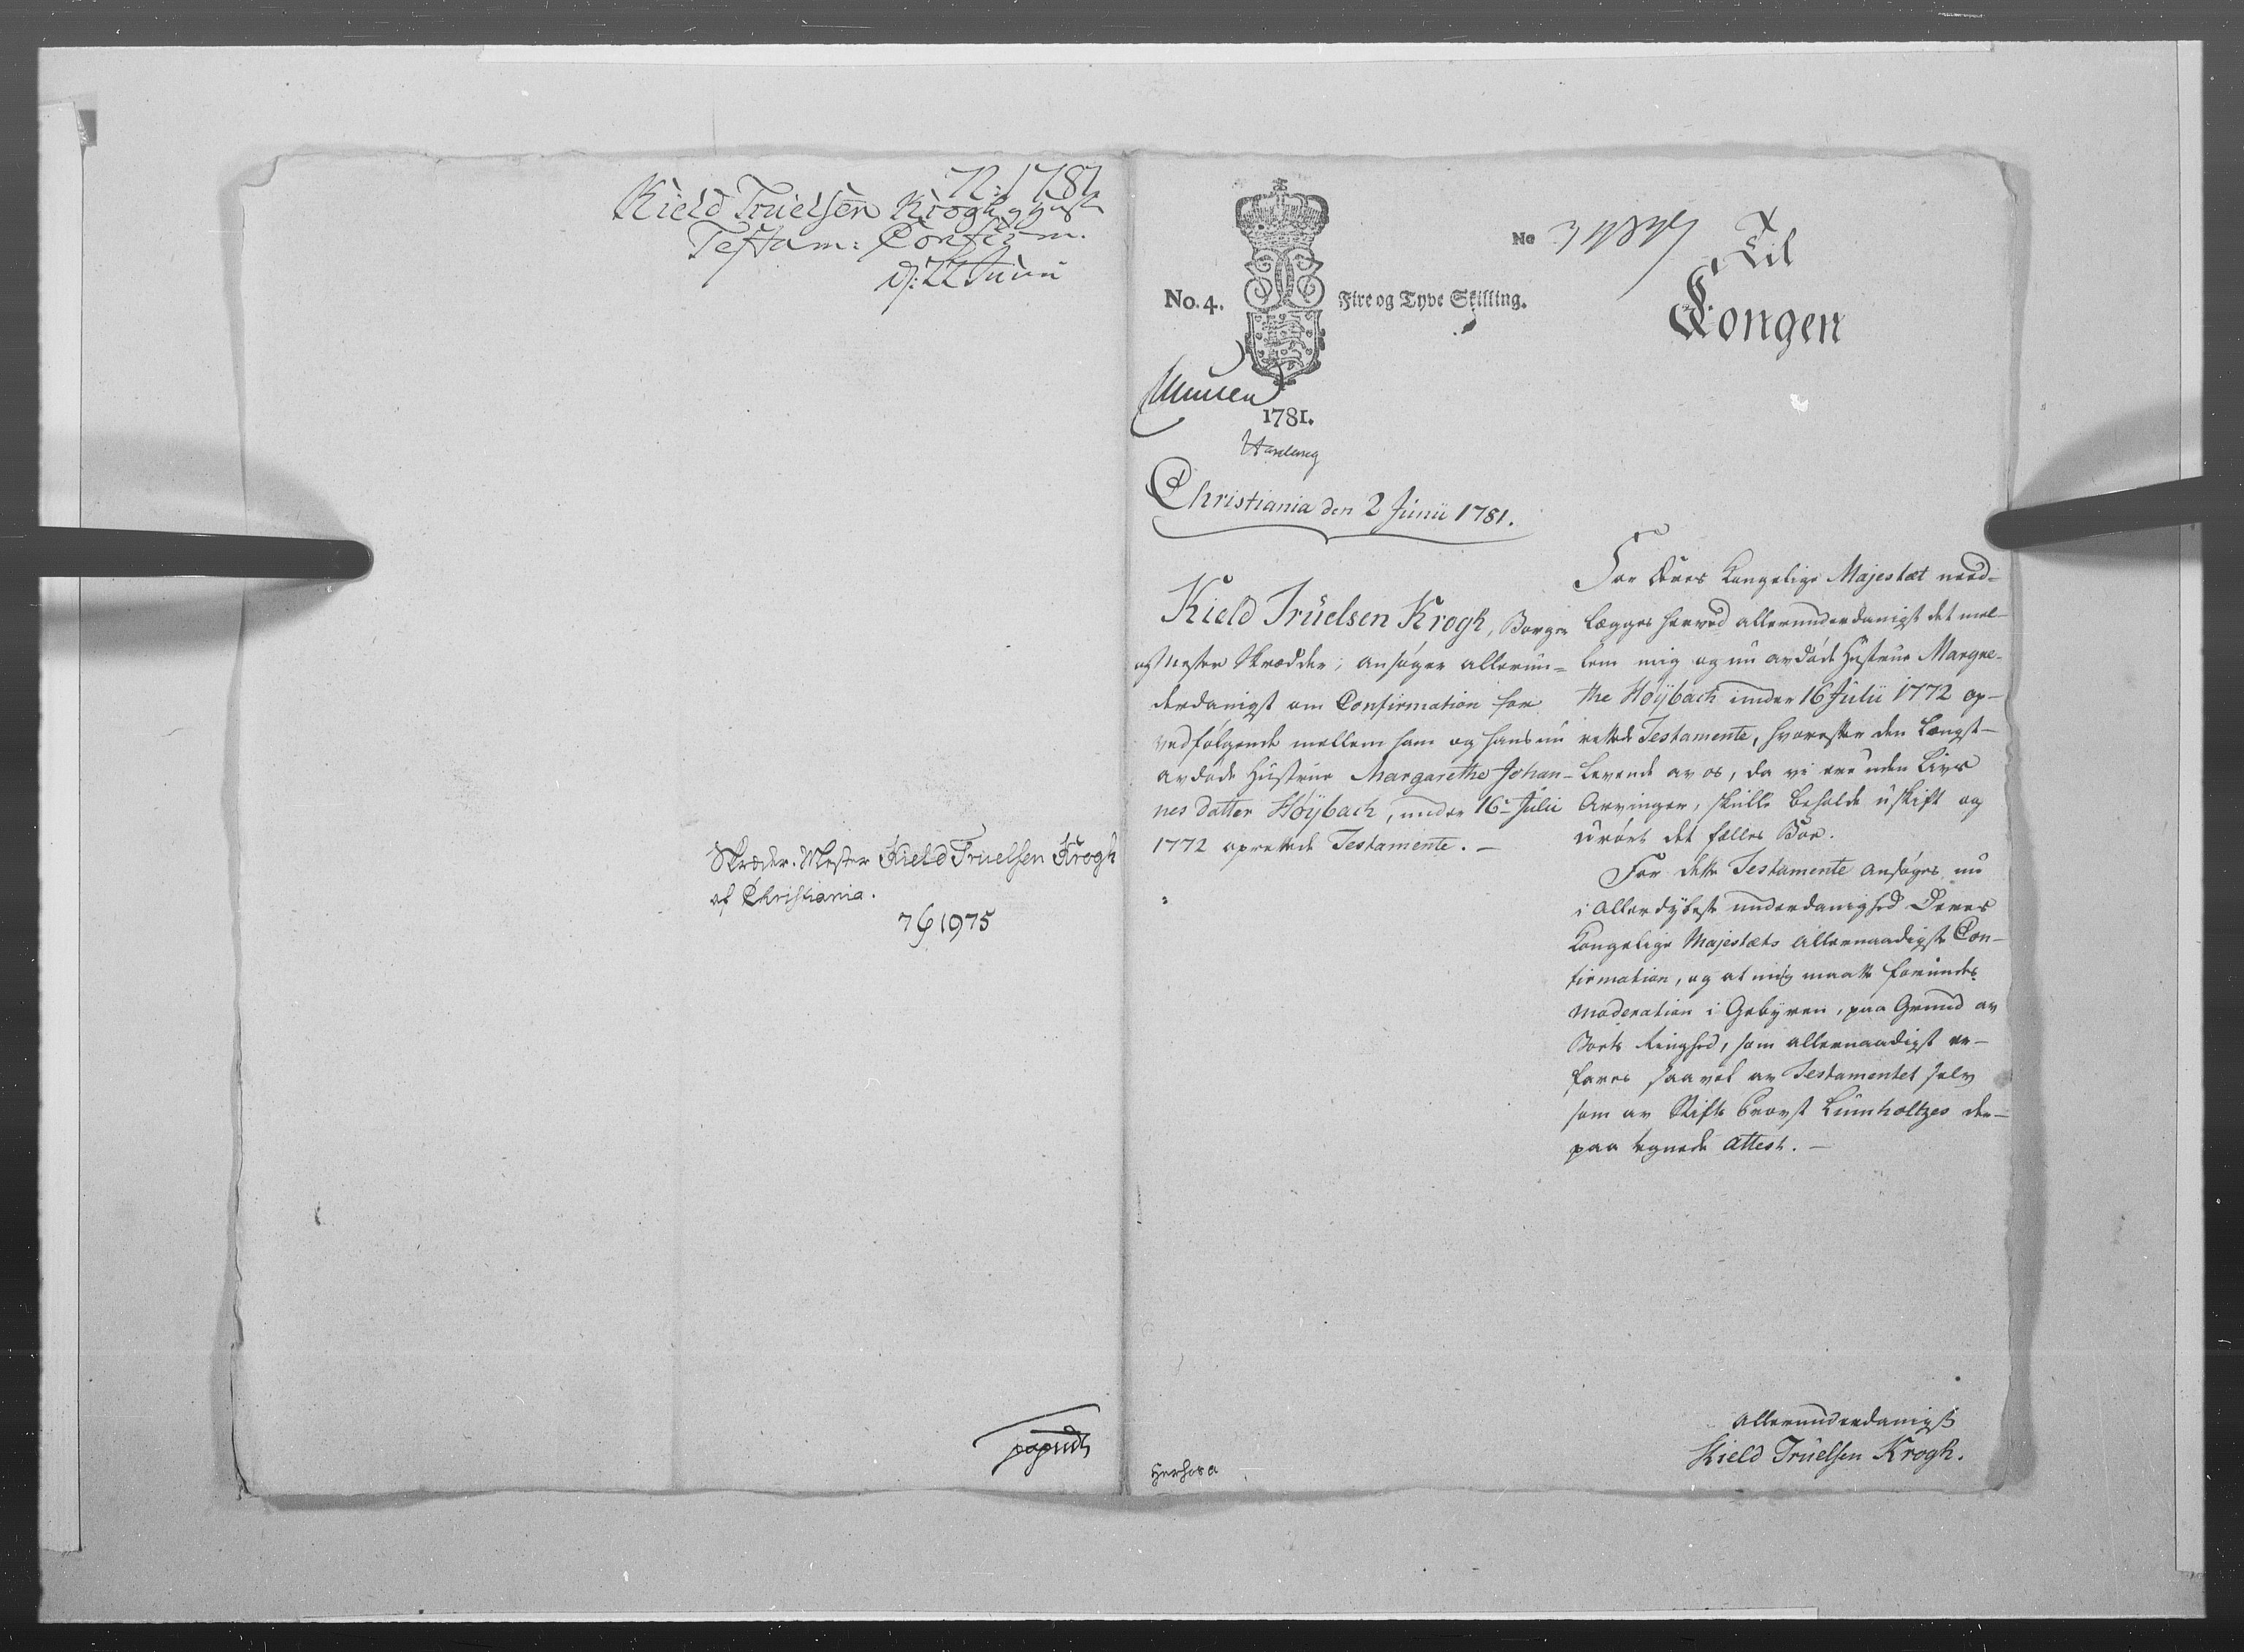 72: 1781
Kield Truelsen Krogh og Hust
Testam: Confirm.
d: 22 Junii
Skræder-Mester Kield Truelsen Krogh
af Christiania.
No. 4.
Fire og Tyve Skilling.
1781.
No
Til
Kongen
Christiania den 2 Junii 1781.
Kield Truelsen Krogh, Borger
og Mester Skrædder, ansøger allerun-
derdanigst om Confirmation for
vedfølgende mellem ham og hans nu
avdøde Hustrue Margarethe Johan-
nes datter Høÿbach, under 16- Julii
1772 oprettede Testamente. —
For Deres Kongelige Majestæt need-
lægges herved allerunderdanigst det mel-
lem mig og nu avdøde Hustrue Margre-
the Høÿbach under 16 Julii 1772 op-
rettede Testamente, hvorefter den Længst-
Levende av os, da vi ere uden Livs
Arvinger, skulle beholde uskift og
urørt det fælles Boe.
For dette Testamente ansøges nu
i allerdybeste underdanighed Deres
Kongelige Majestæts allernaadigste Con-
firmation, og at mig maatte forundes
Moderation i Gebyren, paa Grund av
Boets ringhed, som allernaadigst er-
fares saavel av Testamentet selv
som av Stifts Provst Lumholtzes der-
paa tegnede Attest. —
Allerunderdanigst
Kield Truelsen Krogh.